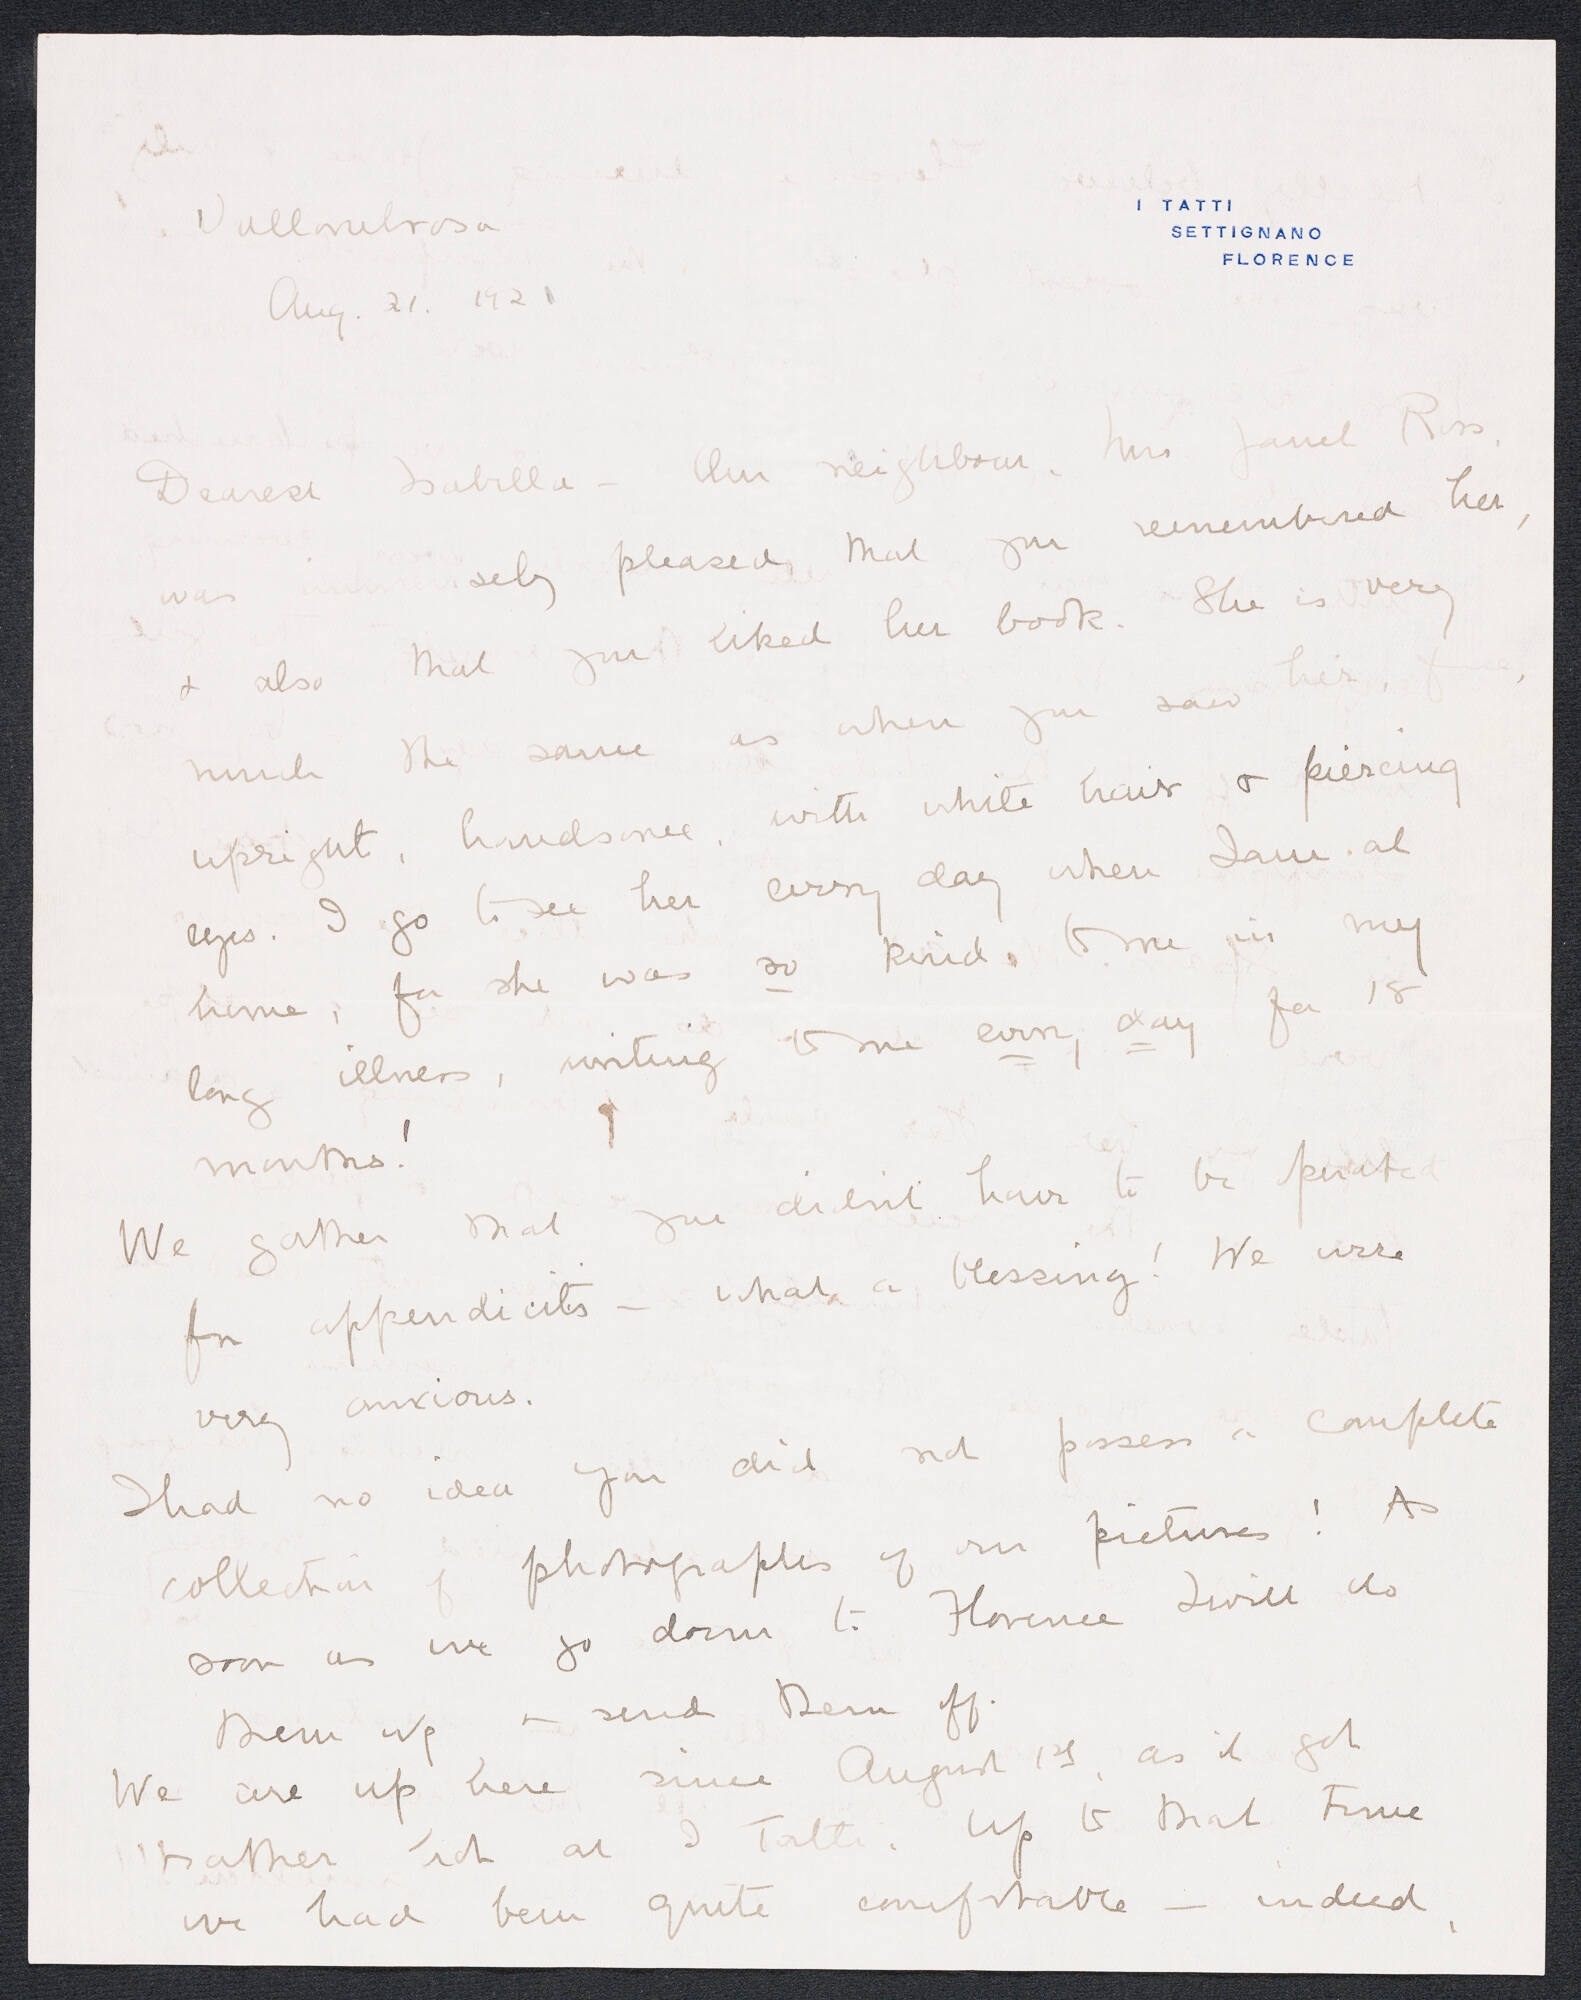 I TATTI
SETTIGNANO
FLORENCE
Vallombrosa
Aug. 21. 1921
Dearest Isabella – Our neighbour, Mrs Janet Ross,
was immensely pleased that you remembered her,
& also that you liked her book. She is very
much the same as when you saw her, fine,
upright, handsome, with white hair & piercing
eyes. I go to see her every day when I am at
home, for she was so kind to me in my
long illness, writing to me every day for 18
months!
We gather that you didn't have to be operated
for appendicitis – what a blessing! We were
very anxious.
I had no idea you did not possess a complete
collection of photographs of our pictures! As
soon as we go down to Florence I will do
them up & send them off.
We are up here since August 1st, as it got
rather hot at I Tatti. Up to that time
we had been quite comfortable – indeed,